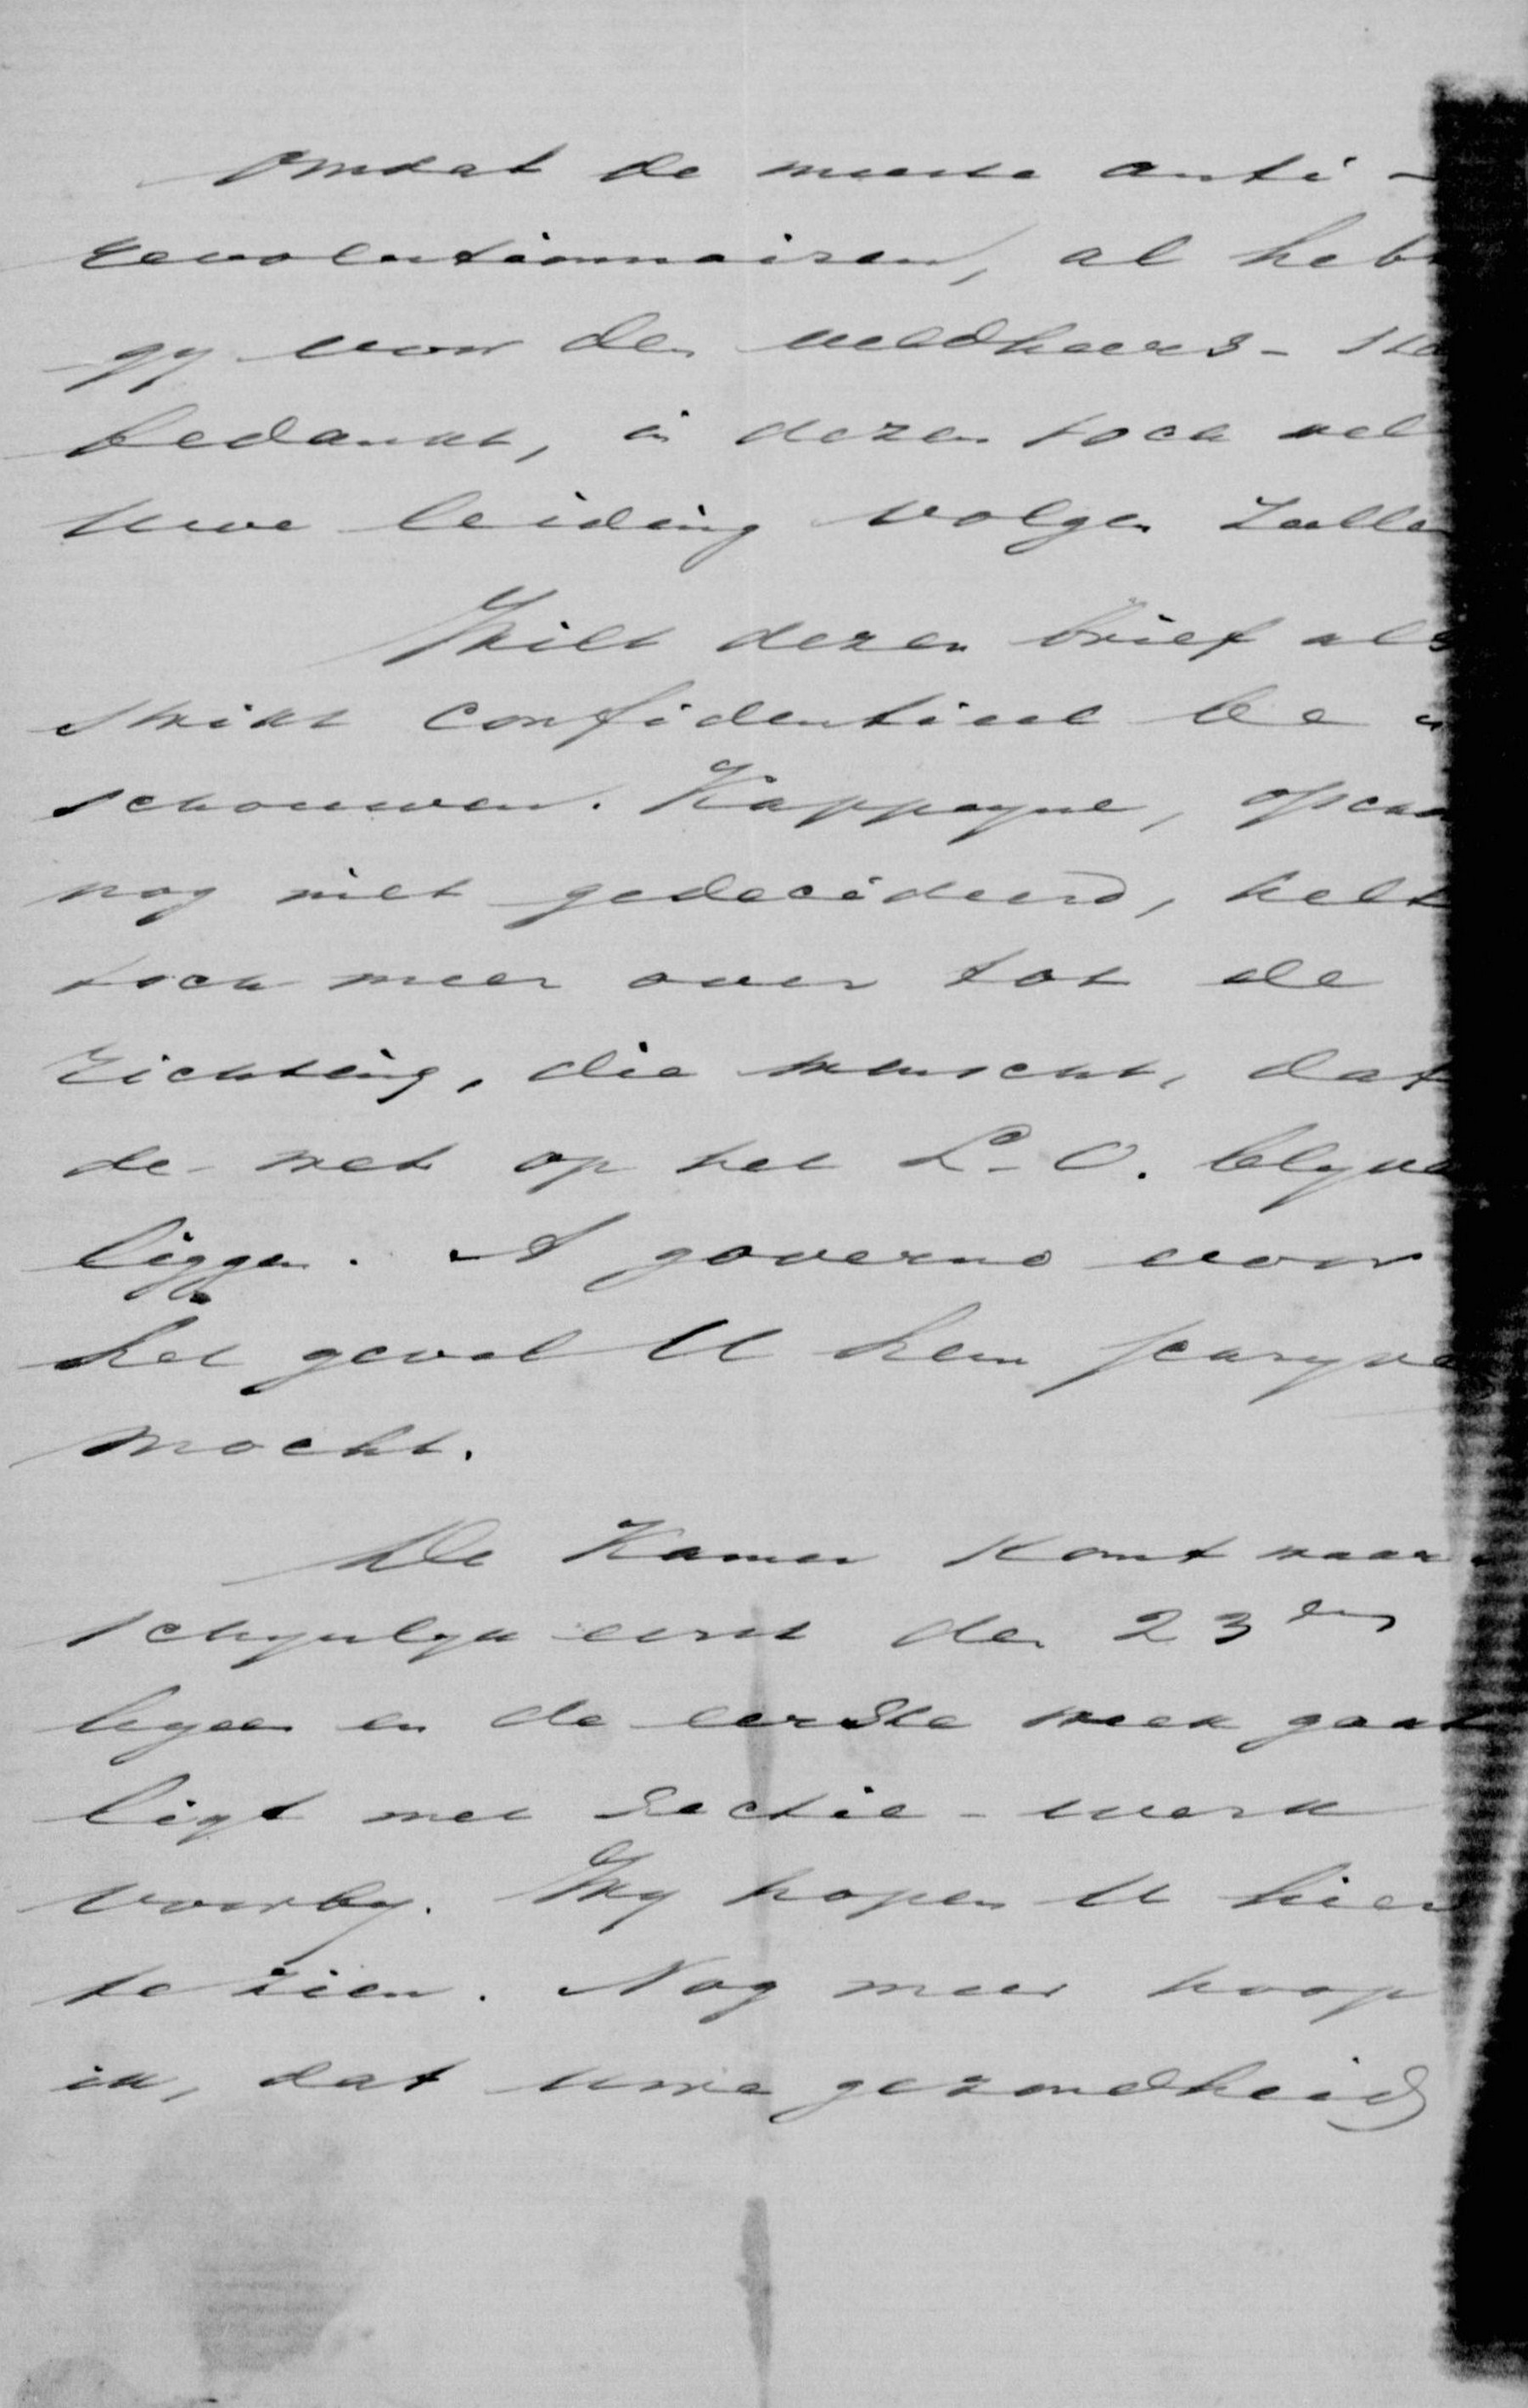 omdat de meeste anti-
revolutionnairen, al heb
gy voor den veldheers-sta
bedankt, in dezen toch wel
uwe leiding volgen zullen
Wilt dezen brief als
strikt confidentieel be
schouwen. Kappeyne, ofscho
nog niet gedecideerd, helt
toch meer over tot de
richting, die wenscht, dat
de wet op het L.O. blyve
liggen. A governo voor
het geval U hem schryve
mocht.
De Kamer komt waar
schynlyk eerst den 23en
byeen en de eerste week gaat
ligt met sectie-werk
voorby. Wy hopen U hier
te zien. Nog meer hoop
ik, dat uwe gezondheid